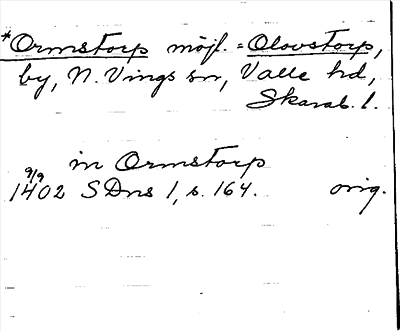 *Ormstorp möjl. = Olovstorp,
by, N. Vings sn, Valle hd,
Skarab. l.
in Ormstorp
9/9
1402 SDns 1, s. 164. orig.